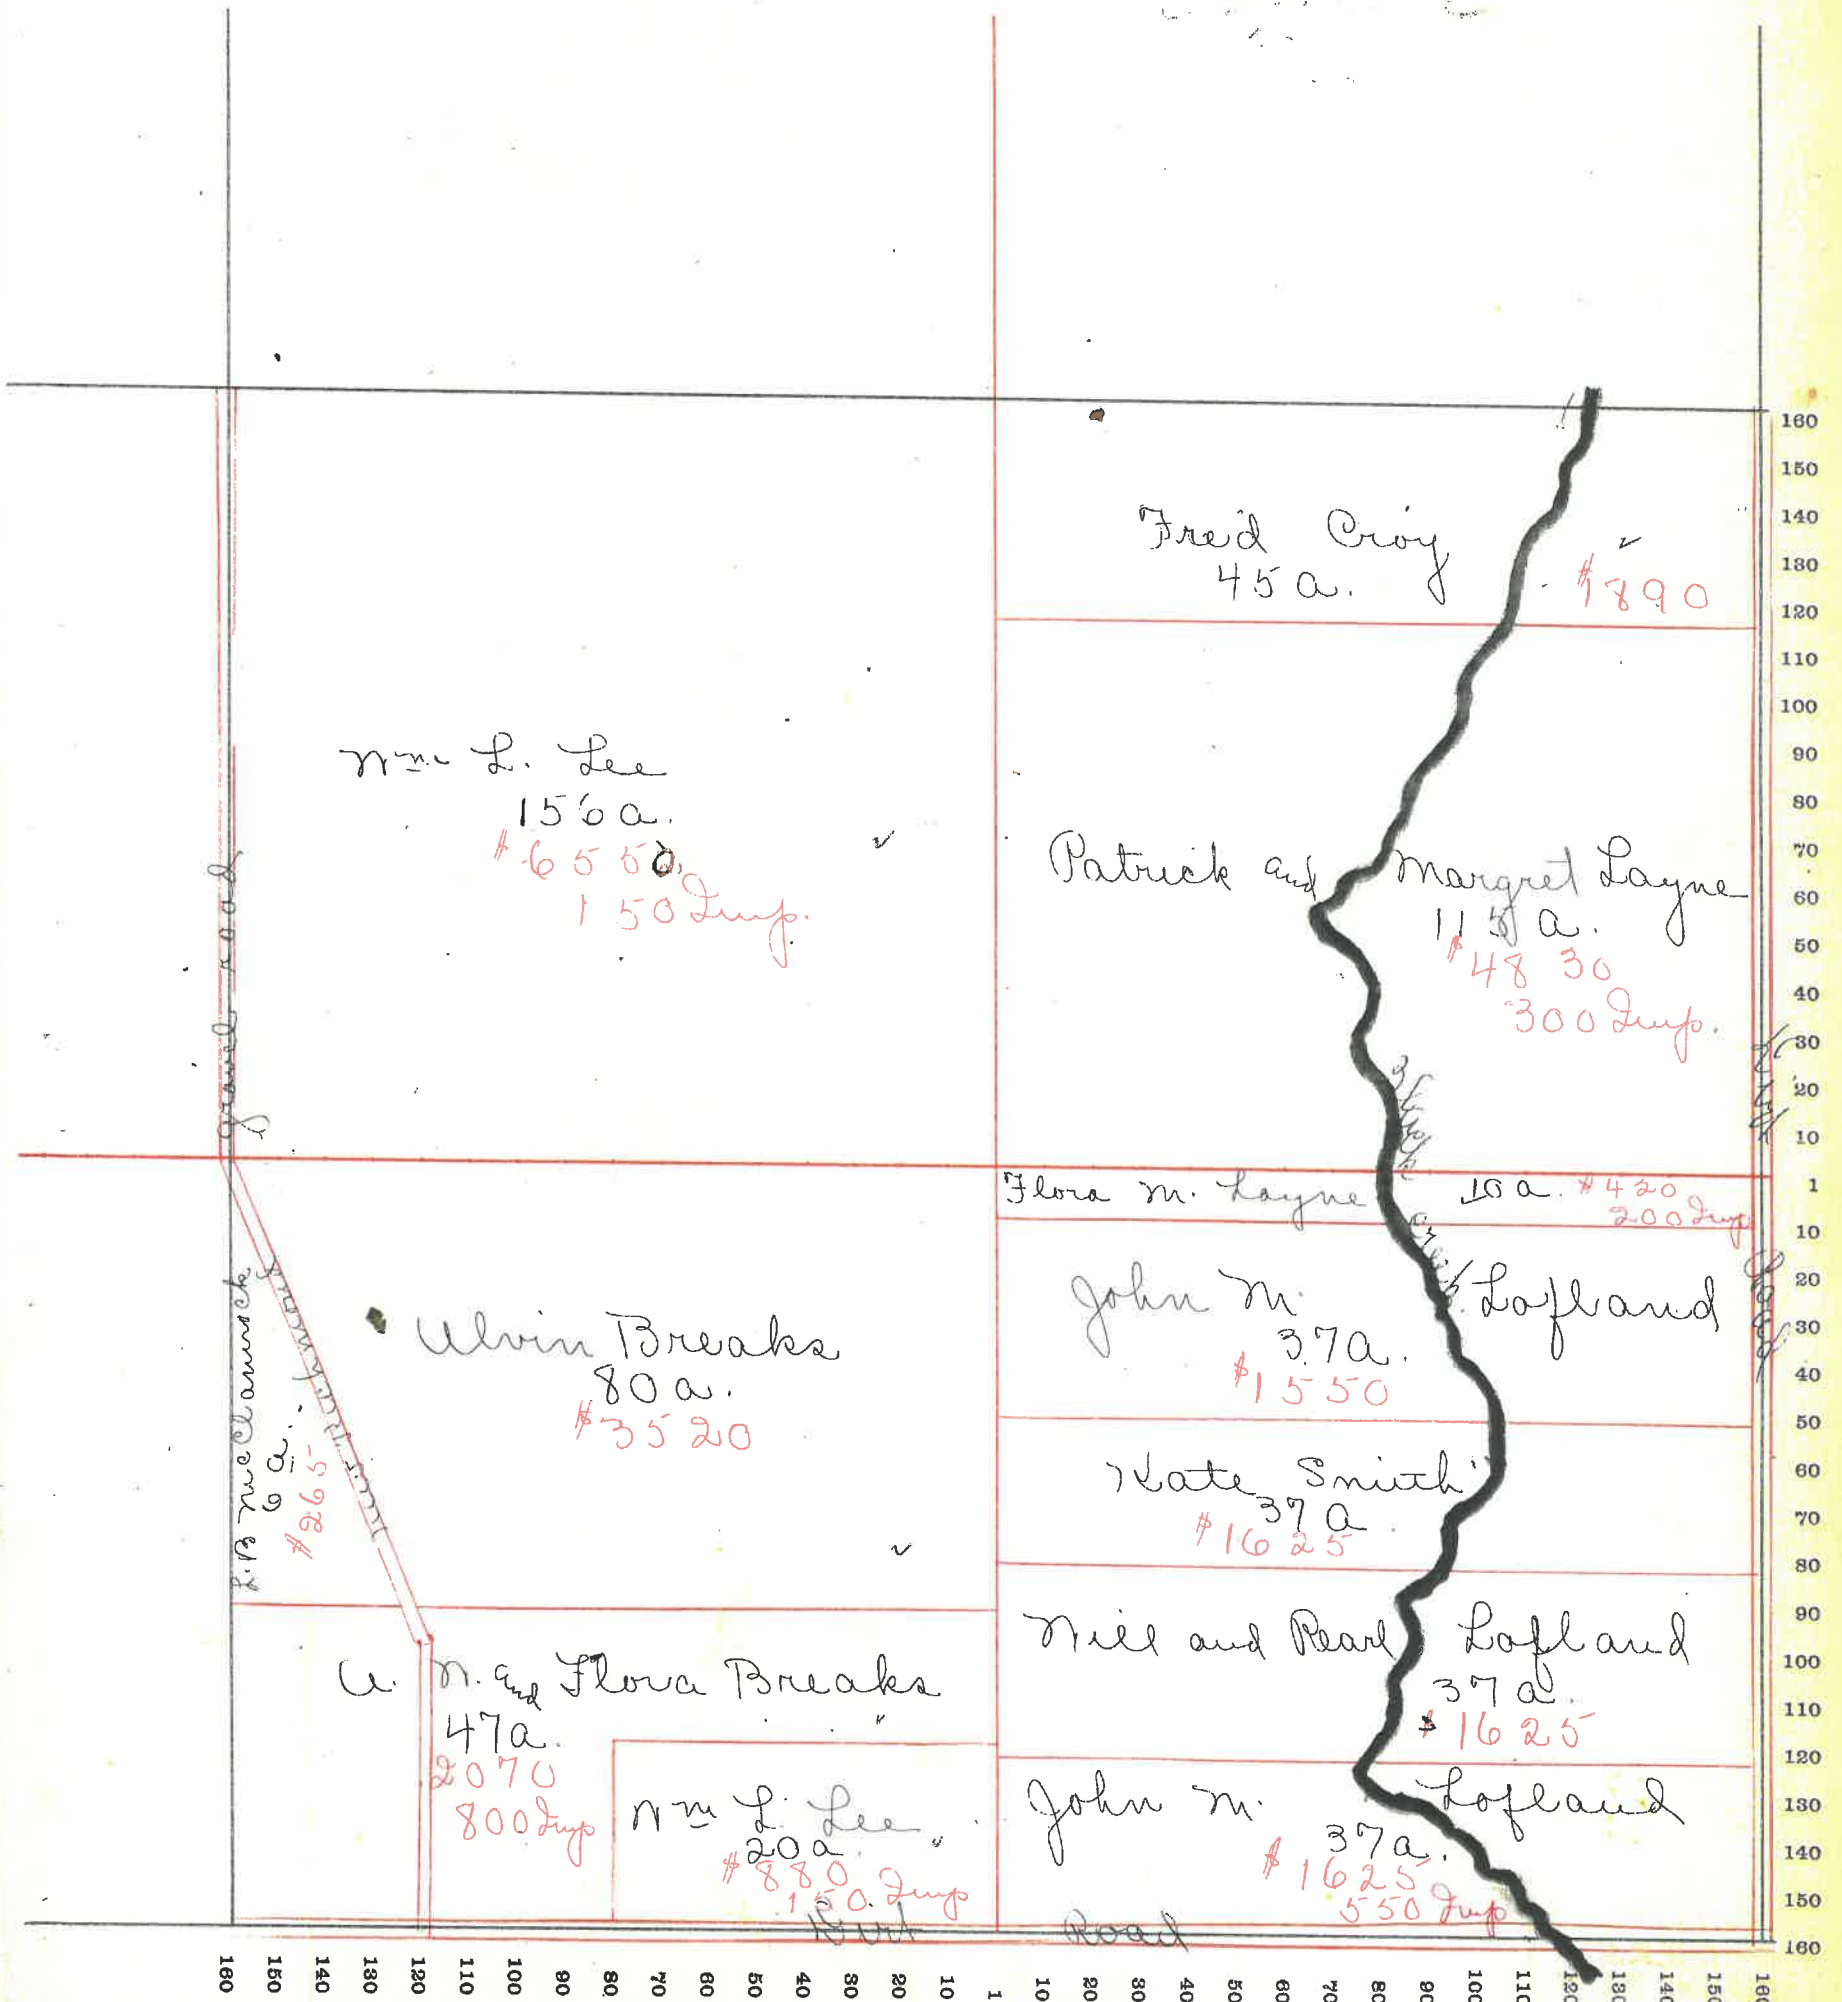 Fred Croy
45 a.
$1890
Wm L. Lee
156 a.
$6550
150 Imp.
gravel road
Patrick and Margret Layne
115 a.
$4830
300 Imp.
Flora M. Layne 10 a. $420
200 Imp
creek
Dirt
Road
John M. Lofland
37a.
$1550
Alvin Breaks
80 a.
$3520
L.B. McClamrock
6 a.
$265
Kate Smith
37 a
$1625
Will and Pearl Lofland
37 a.
$1625
A. N. and Flora Breaks
47a.
2070
800 Imp
Wm L. Lee
20a
$880
150. Imp
John M. Lofland
37a.
$1625
550 Imp
Dirt Road
160
150
140
130
120
110
100
90
80
70
60
50
40
30
20
10
1
10
20
30
40
50
60
70
80
90
100
110
120
130
140
150
160
160 150 140 130 120 110 100 90 80 70 60 50 40 30 20 10 1 10 20 30 40 50 60 70 80 90 100 110 120 130 140 150 160